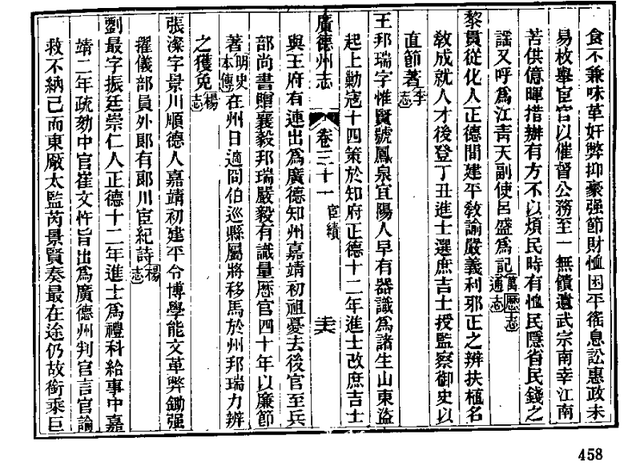 食不兼味革奸弊抑豪强節財恤困平徭息訟惠政未
易枚舉宦官以催督公務至一無饋遺武宗南幸江南
苦供億暉措辦有方不以煩民時有恤民隱省民錢之
謡又呼爲江青天副使呂盛爲記萬歷志通志
黎貫從化人正德間建平敎諭嚴義利邪正之辨扶植名
敎成就人才後登丁丑進士選庶吉士授監察御史以
直節著李志
王邦瑞字惟賢號鳳泉宜陽人早有器識爲諸生山東盜
起上勦寇十四策於知府正德十二年進士改庶吉士
廣德州志 卷三十一 宦績
與王府有連出爲廣德知州嘉靖初祖憂去後官至兵
部尚書贈襄毅邦瑞嚴毅有識量歷官四十年以廉節
著明史本傳在州日適同伯巡縣屬將移馬於州邦瑞力辨
之獲免楊志
張㵆字景川順德人嘉靖初建平令博學能文革弊鋤强
擢儀部員外郎有郎川宦紀詩楊志
劉最字振廷崇仁人正德十二年進士爲禮科給事中嘉
靖二年疏劾中官崔文忤旨出爲廣德州判官言官論
救不納已而東厰太監芮景賢奏最在途仍故銜乘巨
458